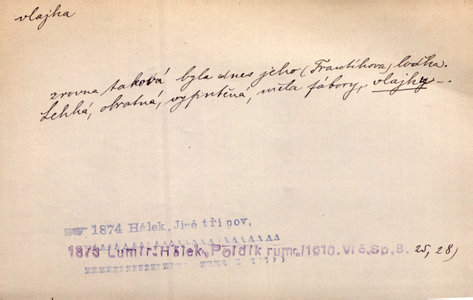 vlajka
zrovna taková byla dnes jeho (Frantíkova) loďka.
Lehká, obratná, vyparáděná, měla fábory, vlajky...
1874 Hálek, Jiné tři pov.
1873 Lumír. Hálek, Poldík rum./1910. Vl č. Sp. 8. 25, 28)